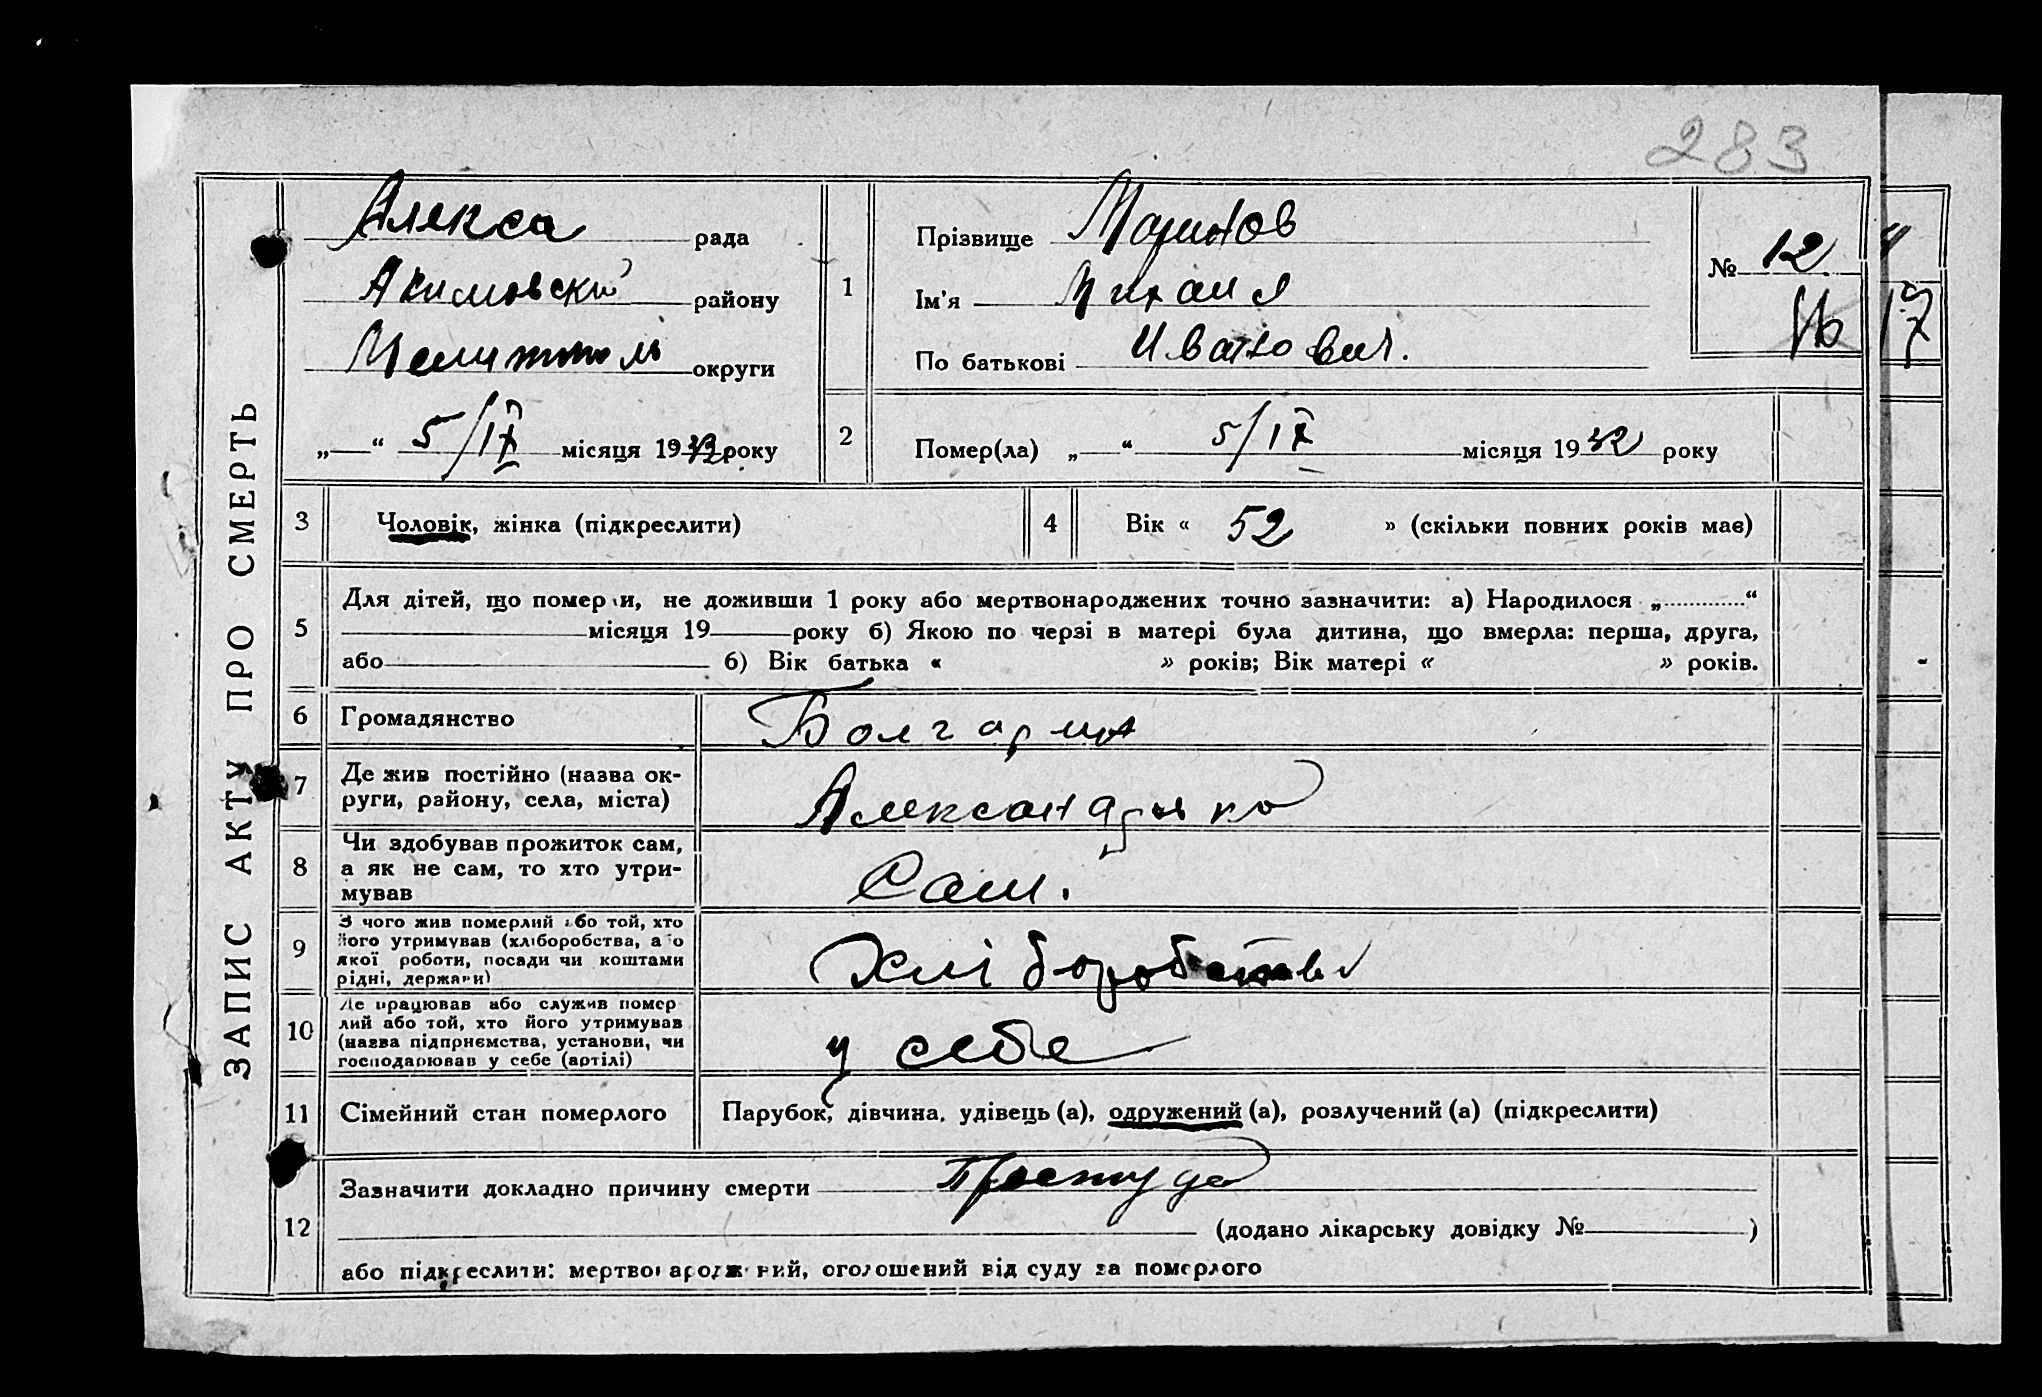 283
ЗАПИС АКТУ ПРО СМЕРТЬ
Алекса рада
Акимовский району
Мелитополь округи
„—“ 5/IV місяця 1932 року
1
Прізвище Маринов
Ім'я Михаил
По батькові Иванович.
№ 12
16
2
Помер(ла) „—“ 5/IV місяця 1932 року
3 Чоловік, жінка (підкреслити)
4 Вік « 52 » (скільки повних років має)
5 Для дітей, що померли, не доживши 1 року або мертвонароджених точно зазначити: а) Народилося „............“
місяця 19 року б) Якою по черзі в матері була дитина, що вмерла: перша, друга,
або б) Вік батька « » років; Вік матері « » років.
6 Громадянство Болгарин
7 Де жив постійно (назва ок-
руги, району, села, міста)
8 Чи здобував прожиток сам,
а як не сам, то хто утри-
мував
Сам.
9 З чого жив померлий або той, хто
його утримував (хліборобства, або
якої роботи, посади чи коштами
рідні, держави)
Хліборобства
10 Де працював або служив помер
лий або той, хто його утримував
(назва підприємства, установи, чи
господарював у себе (артілі)
у себе
11 Сімейний стан померлого Парубок, дівчина, удівець (а), одружений (а), розлучений (а) (підкреслити)
12 Зазначити докладно причину смерти Простуда
(додано лікарську довідку № )
або підкреслити: мертвонароджений, оголошений від суду за померлого